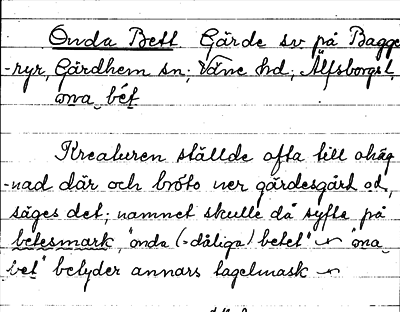 Onda Bett. Gärde sv på Bagge
-ryr, Gärdhem sn; Väne hd; Älfsborgs l.
ona bét
Kreaturen ställde ofta till ohäg
-nad där och bröto ner gärdesgård od,
säges det; namnet skulle då syfta på
betesmark, "onda (=dåliga) betet" ~ "ona
bet" betyder annars tagelmask ~